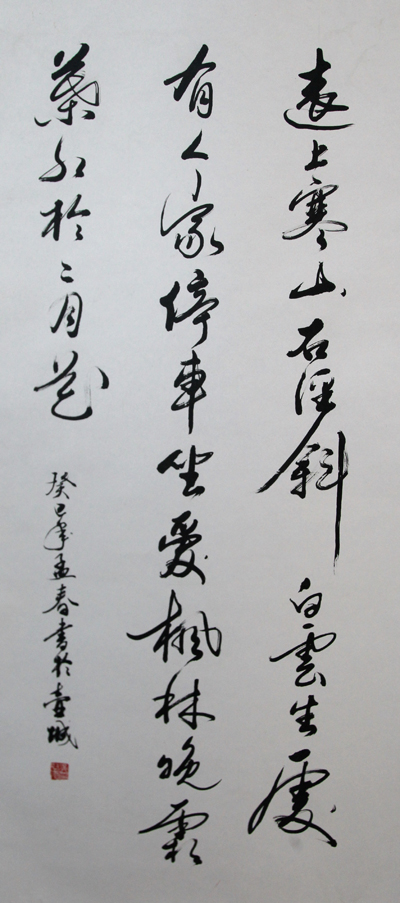 遠上寒山石徑斜白雲生處
有人家停車坐愛楓林晚霜
葉紅於二月花
癸巳年孟春書於壺城